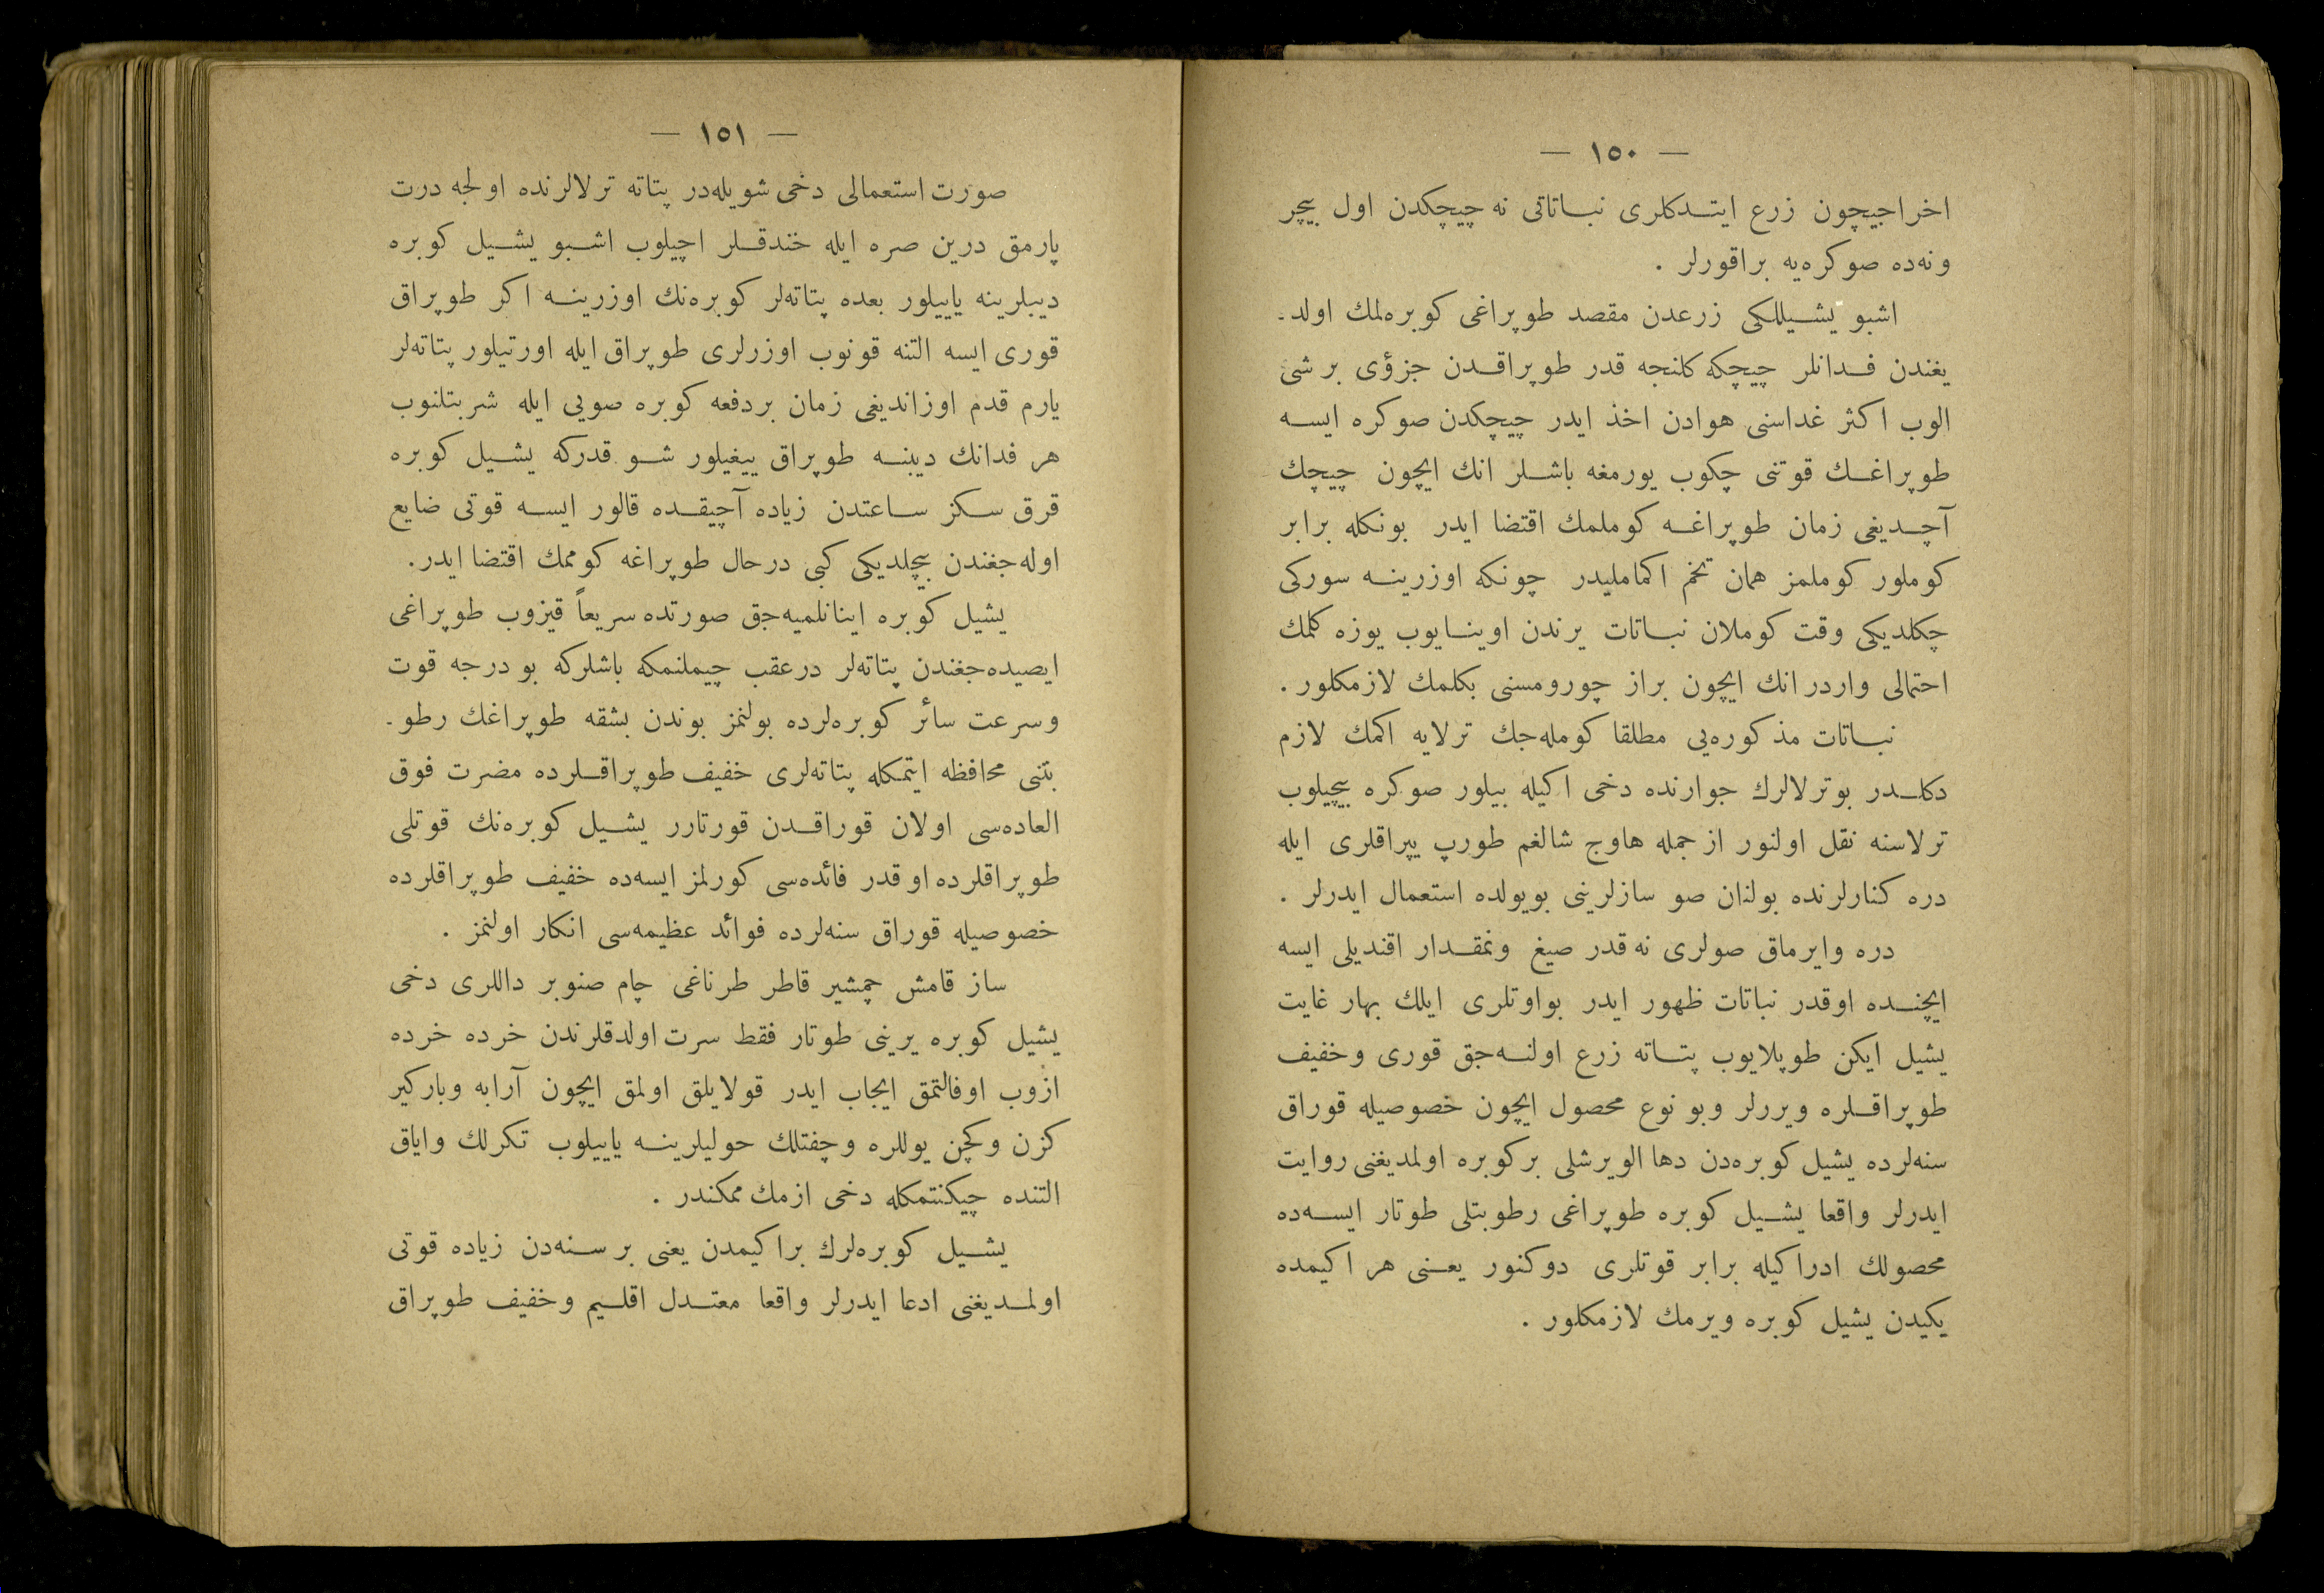 — ١٥٠ —
اخراجيچون زرع ايتدكلرى نباتاتى نه چيچكدن اول بيچر
ونه‌ده صوكره‌يه براقورلر .
اشبو يشيللكى زرعدن مقصد طوپراغى كوبره‌لمك اولد-
يغندن فدانلر چيچكه كلنجه قدر طوپراقدن جزؤى بر شى
الوب اكثر غداسنى هوادن اخذ ايدر چيچكدن صوكره ايسه
طوپراغك قوتنى چكوب يورمغه باشلر انك ايچون چيچك
آچديغى زمان طوپراغه كوملمك اقتضا ايدر بونكله برابر
كوملور كوملمز همان تخم اكماملیدر چونكه اوزرينه سوركى
چكلديكى وقت كوملان نباتات يرندن اوينايوب يوزه كلمك
احتمالى واردر انك ايچون براز چورومسنى بكلمك لازمكلور .
نباتات مذكوره‌يى مطلقا كومله‌جك ترلايه اكمك لازم
دكلدر بوترلالرك جوارنده دخى اكيله بيلور صوكره بيچيلوب
ترلاسنه نقل اولنور از جمله هاوج شالغم طورپ يپراقلرى ايله
دره كنارلرنده بولنان صو سازلرينى بويولده استعمال ايدرلر .
دره وايرماق صولرى نه قدر صيغ ونمقدار اقنديلى ايسه
ايچنده اوقدر نباتات ظهور ايدر بواوتلرى ايلك بهار غايت
يشيل ايكن طوپلايوب پتاته زرع اولنه‌جق قورى وخفيف
طوپراقلره ويررلر وبو نوع محصول ايچون خصوصيله قوراق
سنه‌لرده يشيل كوبره‌دن دها الويرشلى بركوبره اولمديغنى روايت
ايدرلر واقعا يشيل كوبره طوپراغى رطوبتلى طوتار ايسه‌ده
محصولك ادراكيله برابر قوتلرى دوكنور يعنى هر اكيمده
يكيدن يشيل كوبره ويرمك لازمكلور .
— ١٥١ —
صورت استعمالى دخى شويله‌در پتاته ترلالرنده اولجه درت
پارمق درين صره ايله خندقلر اچيلوب اشبو يشيل كوبره
ديبلرينه ياييلور بعده پتاته‌لر كوبره‌نك اوزرينه اكر طوپراق
قورى ايسه التنه قونوب اوزرلرى طوپراق ايله اورتيلور پتاته‌لر
يارم قدم اوزانديغى زمان بردفعه كوبره صويى ايله شربتلنوب
هر فدانك ديبنه طوپراق ييغيلور شو قدركه يشيل كوبره
قرق سكز ساعتدن زياده آچيقده قالور ايسه قوتى ضايع
اوله‌جغندن بيچلديكى كبى درحال طوپراغه كوممك اقتضا ايدر.
يشيل كوبره اينانلميه‌جق صورتده سريعاً قيزوب طوپراغى
ايصيده‌جغندن پتاته‌لر درعقب چيملنمكه باشلركه بو درجه قوت
وسرعت سائر كوبره‌لرده بولنمز بوندن بشقه طوپراغك رطو-
بتنى محافظه ايتمكله پتاته‌لرى خفيف طوپراقلرده مضرت فوق
العاده‌سى اولان قوراقدن قورتارر يشيل كوبره‌نك قوتلى
طوپراقلرده اوقدر فائده‌سى كورلمز ايسه‌ده خفيف طوپراقلرده
خصوصيله قوراق سنه‌لرده فوائد عظيمه‌سى انكار اولنمز .
ساز قامش چمشير قاطر طرناغى چام صنوبر داللرى دخى
يشيل كوبره يرينى طوتار فقط سرت اولدقلرندن خرده خرده
ازوب اوفالتمق ايجاب ايدر قولايلق اولمق ايچون آرابه وباركير
كزن وكچن يوللره وچفتلك حوليلرينه ياييلوب تكرلك واياق
التنده چيكنتمكله دخى ازمك ممكندر .
يشيل كوبره‌لرك براكيمدن يعنى بر سنه‌دن زياده قوتى
اولمديغنى ادعا ايدرلر واقعا معتدل اقليم وخفيف طوپراق